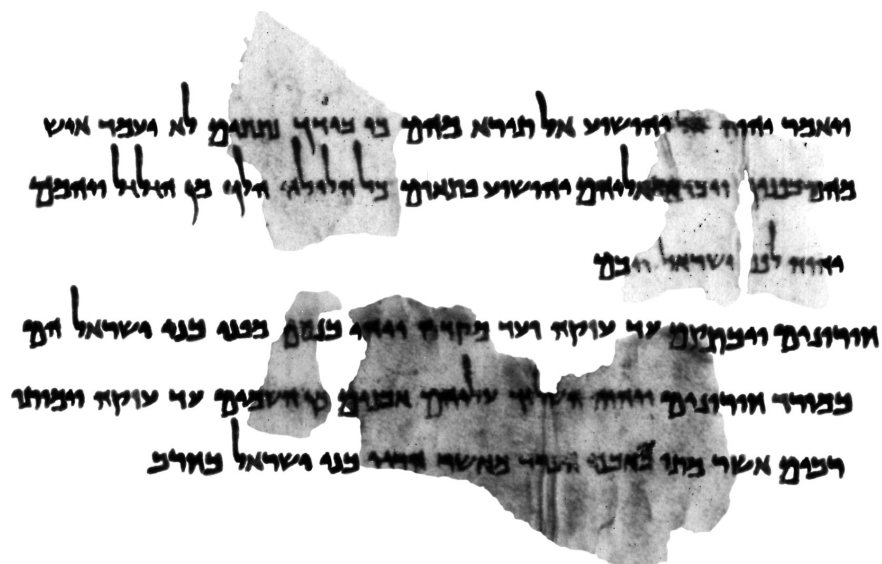 ויאמר יהוה אל יהושוע אל תירא מהם כי בידך נתתים לא יעמד איש
מהם בפניך ויבא אליהם יהושוע פתאום כל הלילה הלך מן הגלגל ויהמם
יהוה לפני ישראל ויכם
חורונים עד עזקה ועד מקדה ויהי בנסם מפני בני ישראל הם
במורד חורונים ויהוה השליך עליהם אבנים מן השמים עד עזקה וימותו
רבים אשר מתו באבני הברד מאשר הרגו בני ישראל בחרב